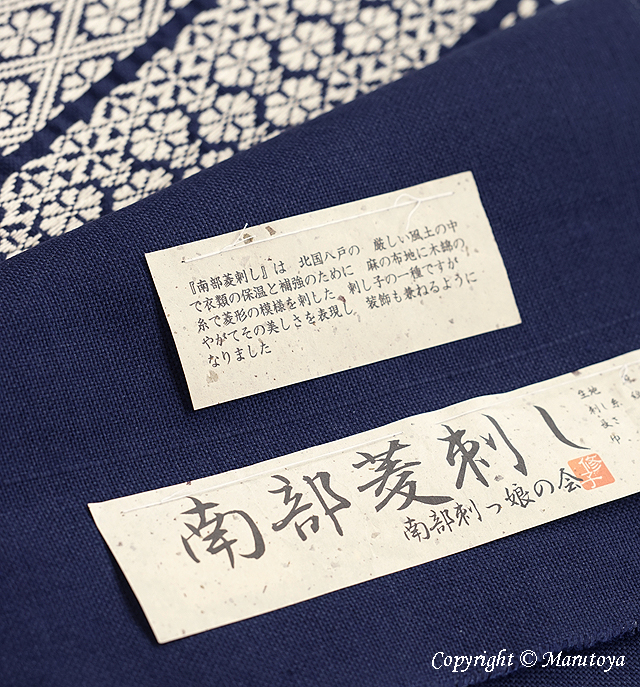 『南部菱刺し』は　北国八戸の　厳しい風土の中
で衣類の保温と補強のために　麻の布地に木綿の
糸で菱形の模様を刺した　刺し子の一種ですが
やがてその美しさを表現し　装飾も兼ねるように
なりました
南部菱刺し
南部刺っ娘の会
修子
Copyright © Marutoya